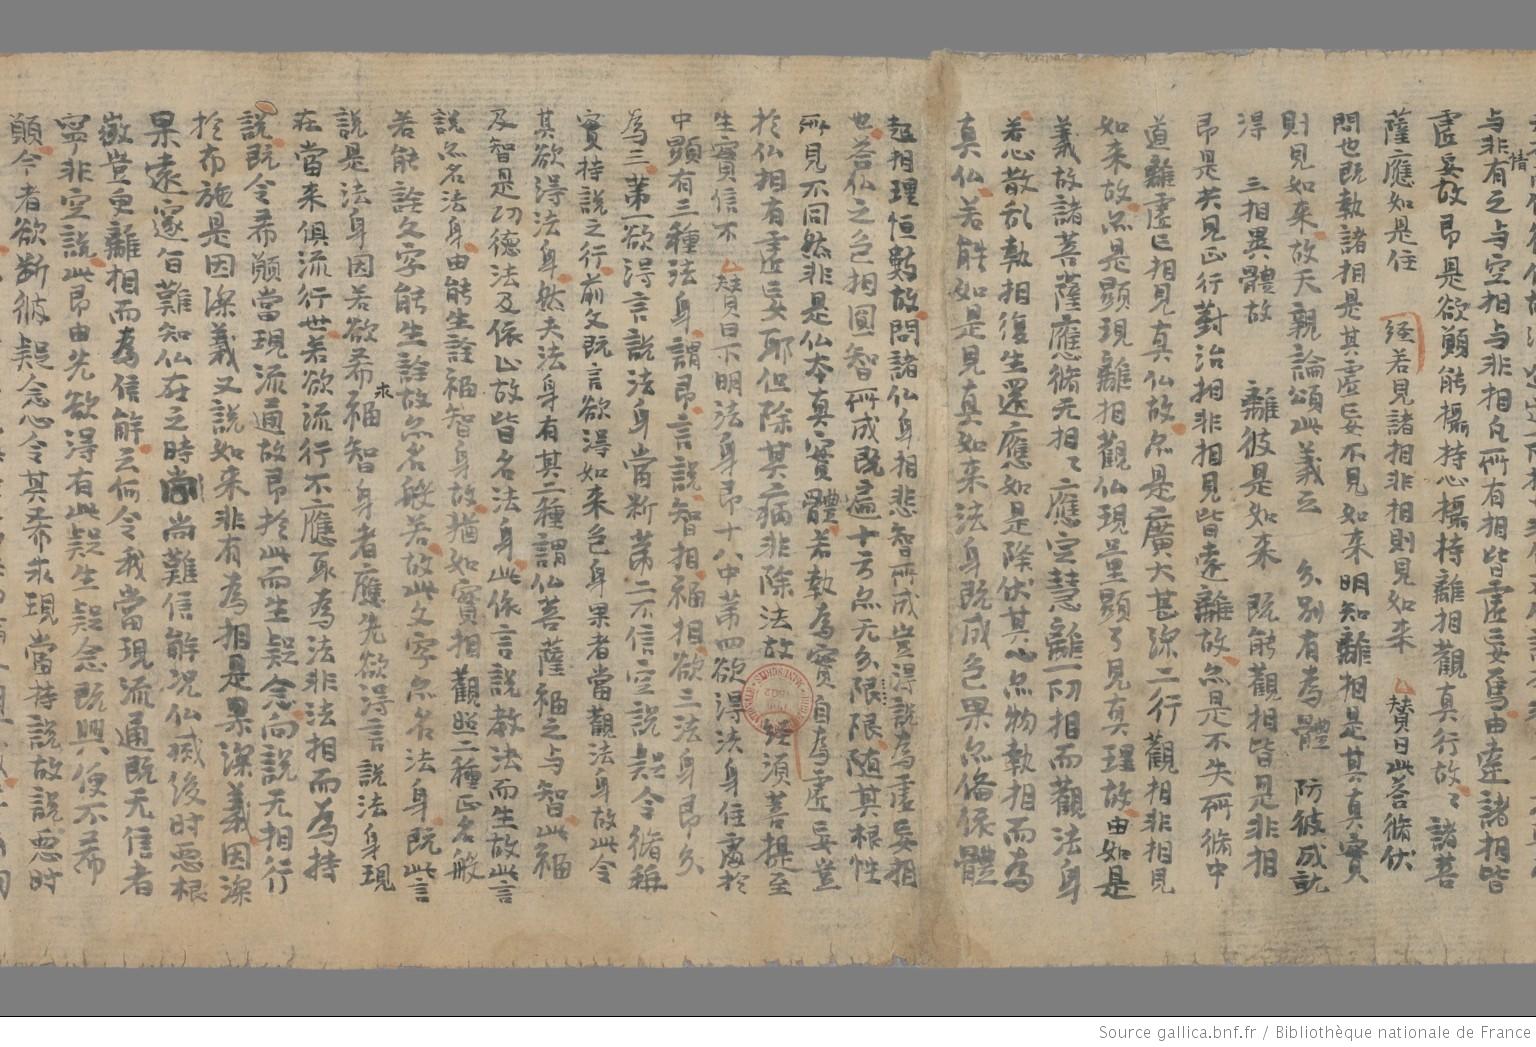 与非有之与空相与非相凡所有相皆虛妄焉由遣諸相皆
虛妄故昂是欲願能攝持心攝持離相觀真行故〻諸菩
薩應如是住 経若見諸相非相則見如来 賛曰此荅脩伏
問也既執諸相是其虛妄不見如来明知離相是其真實
則見如来故天親論頌此義云 分別有為體 防彼成就
得 三相異體故 離彼是如来 既能觀相皆是非相
昂是共見正行對治相非相見皆遠離故亦是不失所脩中
道離虛妄相見真仏故亦是廣大甚深二行觀相非相見
如来故亦是顯現離相觀仏現量顯了見真理故由如是
義故諸菩薩應脩无相〻應定慧離一切相而觀法身
若心散乱執相復生還應如是降伏其心亦物執相而為
真仏若能如是見真如来法身既成色果亦俻依體
起相理恒數故問諸仏身相悲智所成豈得說為虛妄相
也荅仏之色相圓智所成既遍十方亦无分限限随其根性
所見不同然非是仏本真實體若執為實自為虛妄豈
於仏相有虛妄耶但除其病非除法故 経須菩提至
生實信不 賛曰下明法身昂十八中第四欲得法身住處於
中顯有三種法身謂昂言說智相福相欲三法身昂分
為三第一欲得言說法身當斷第二不信空說疑令脩稱
實持說之行前文既言欲得如来色身果者當觀法身故此令
其欲得法身然夫法身有其二種謂仏菩薩福之与智此福
及智是功德法及依止故皆名法身此依言說教法而生故此言
說亦名法身由能生詮福智身故猶如實相觀照二種正名般
若能詮文字能生詮故亦名般若故此文字亦名法身既此言
說是法身因若欲希求福智身者應先欲得言說法身現
在當来俱流行世若欲流行不應取為法非法相而為持
說既令希願當現流通故昂於此而生疑念向說无相行
於布施是因深義又說如来非有為相是果深義因深
果遠邃自難知仏在之時尚尚難信解况仏滅後時惡根
微豈更離相而為信解云何令我當現流通既无信者
寧非空說此昂由先欲得有此疑生疑念既興便不希
願今者欲斷彼疑念心令其希求現當持說故說惡時
Source gallica.bnf.fr / Bibliothèque nationale de France